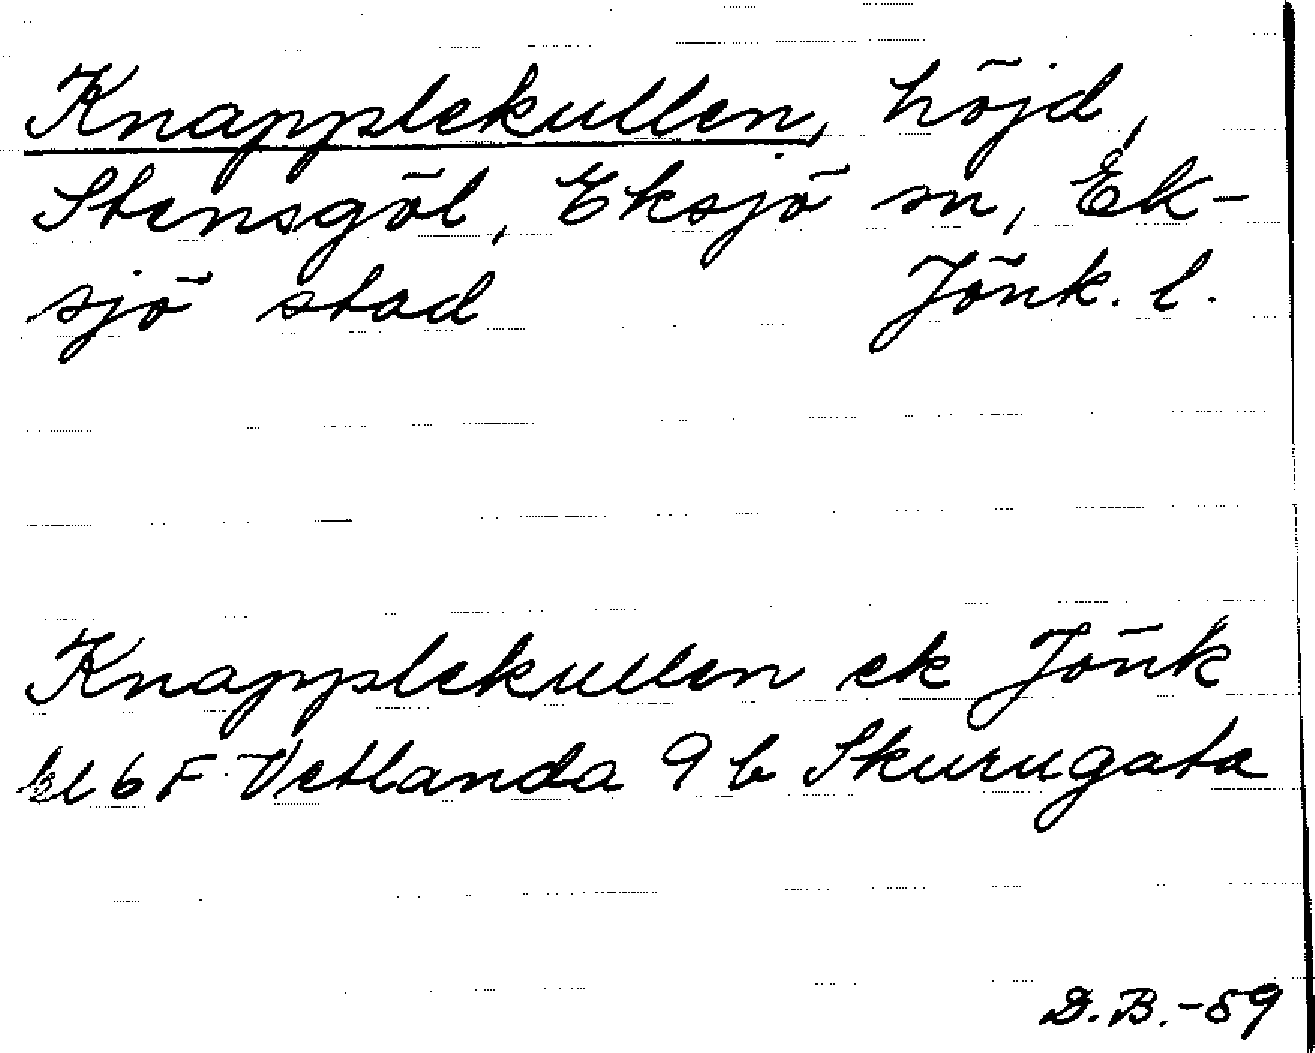 Knapplekullen, höjd,
Stensgöl, Eksjö sn, Ek-
sjö stad Jönk. l.
Knapplekullen ek Jönk
bl 6 F Vetlanda 9 b Skurugata
D.B.-59